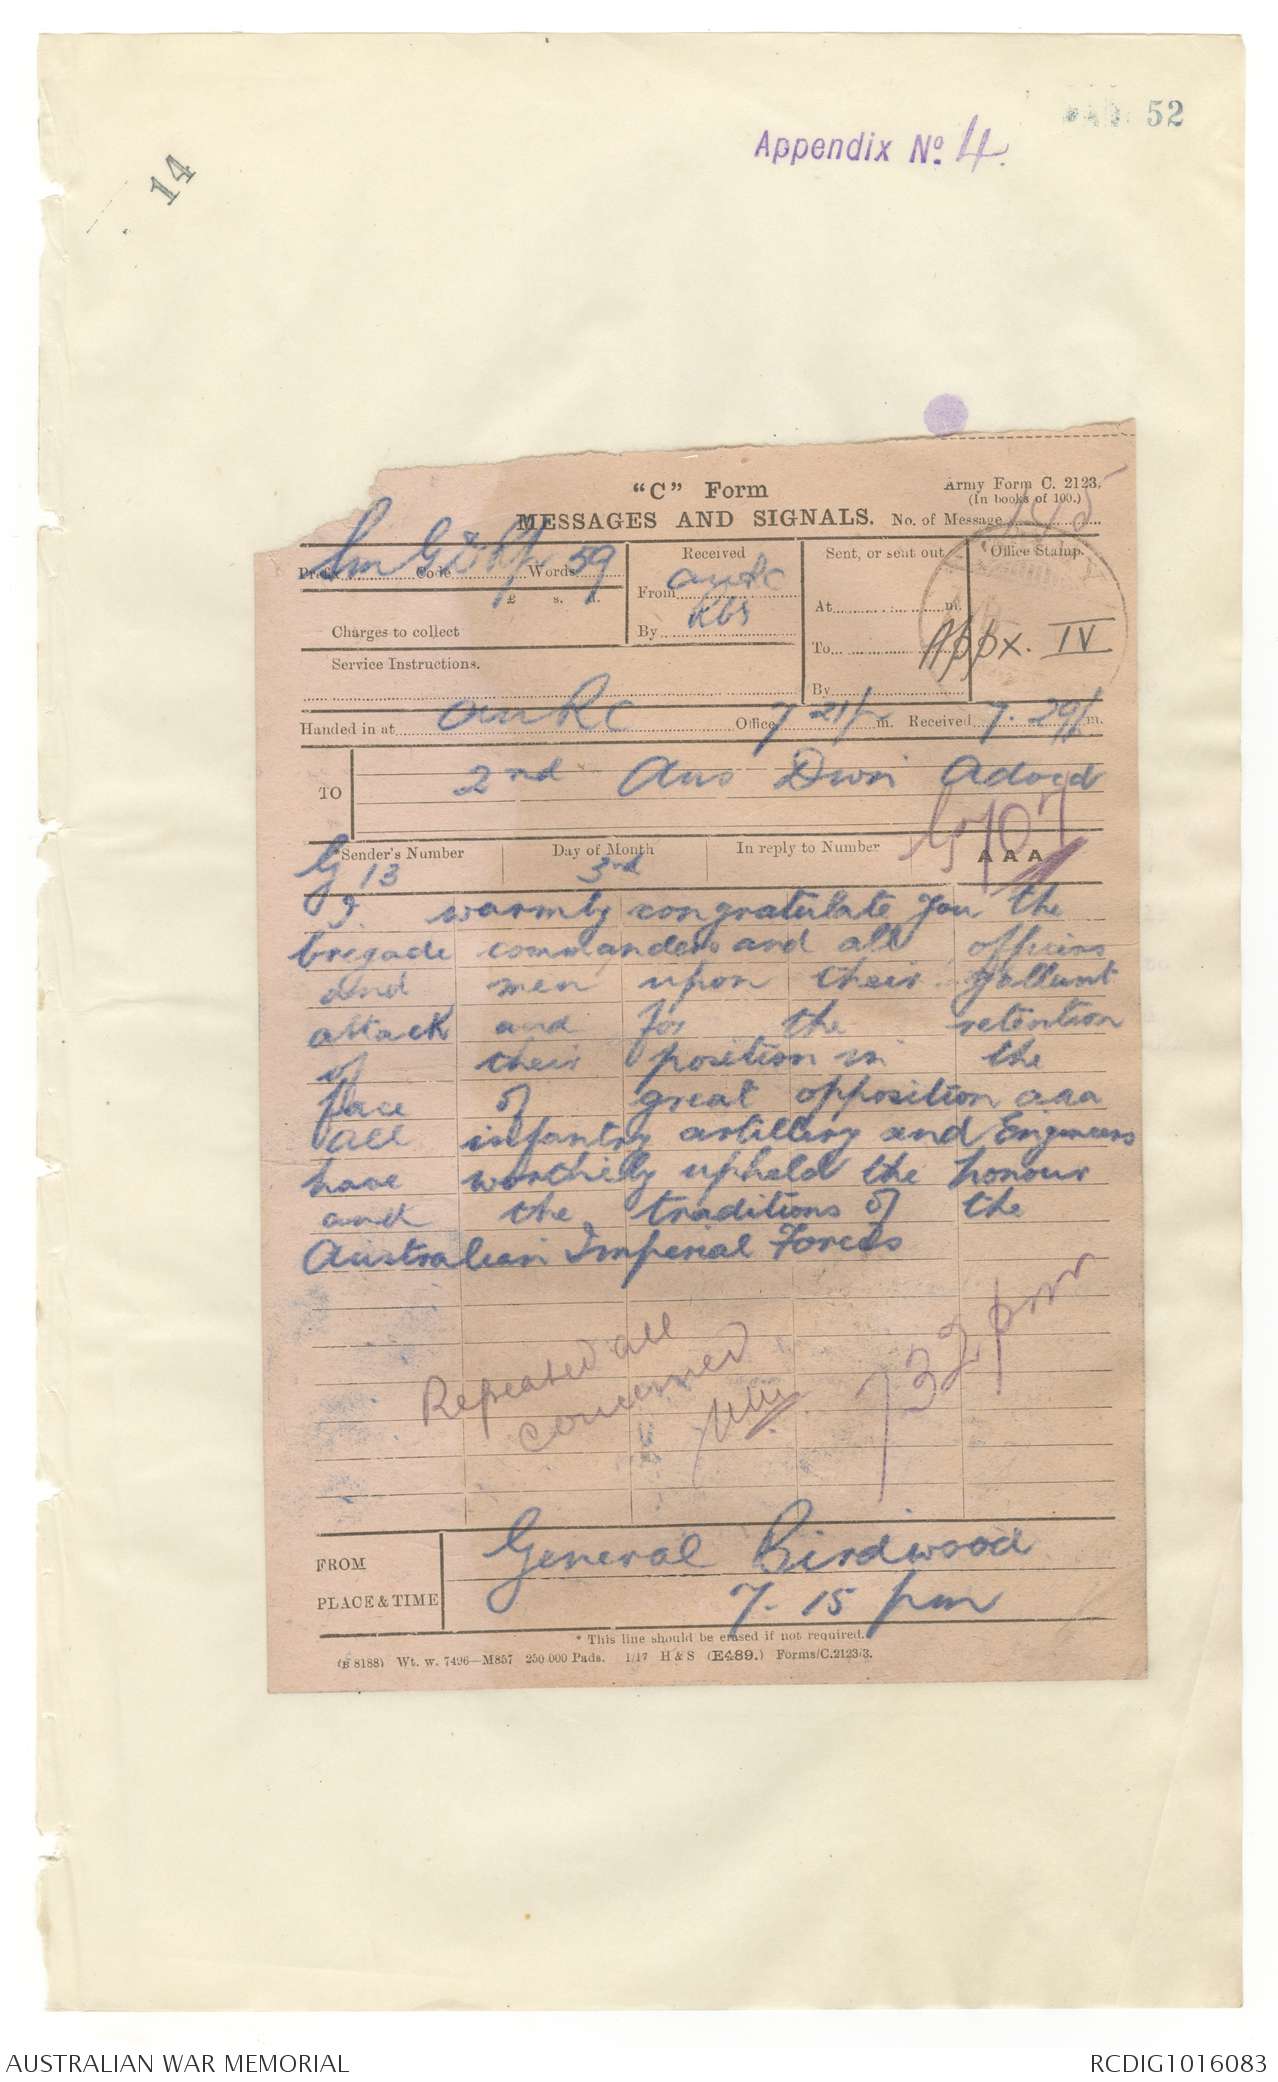 52
Appendix No. 4.
14
"C" Form
Army Form C. 2123.
(In books of 100.)
MESSAGES AND SIGNALS.
No. of Message
Prefix Sm Code Words 59
£ s. d.
Charges to collect
Service Instructions.
Received
From
By
Sent, or sent out
At m.
To
By
Office Stamp.
Appx. IV
Handed in at Office 7 21 m. Received 7. 29 m.
TO 2nd Aus Divn Advd
*Sender's Number
Day of Month
In reply to Number
AAA
G 13
3rd
I warmly congratulate you the
brigade commanders and all officers
and men upon their gallant
attack and for the retention
of their position in the
face of great opposition aaa
all infantry artillery and Engineers
have worthily upheld the honour
and the traditions of the
Australian Imperial Forces
Repeated all
concerned
732 pm
FROM
PLACE & TIME
General Birdwood
7. 15 pm
* This line should be erased if not required.
(B 8188) Wt. w. 7496—M857 250,000 Pads. 1/17 H & S (E489.) Forms/C.2123/3.
AUSTRALIAN WAR MEMORIAL
RCDIG1016083